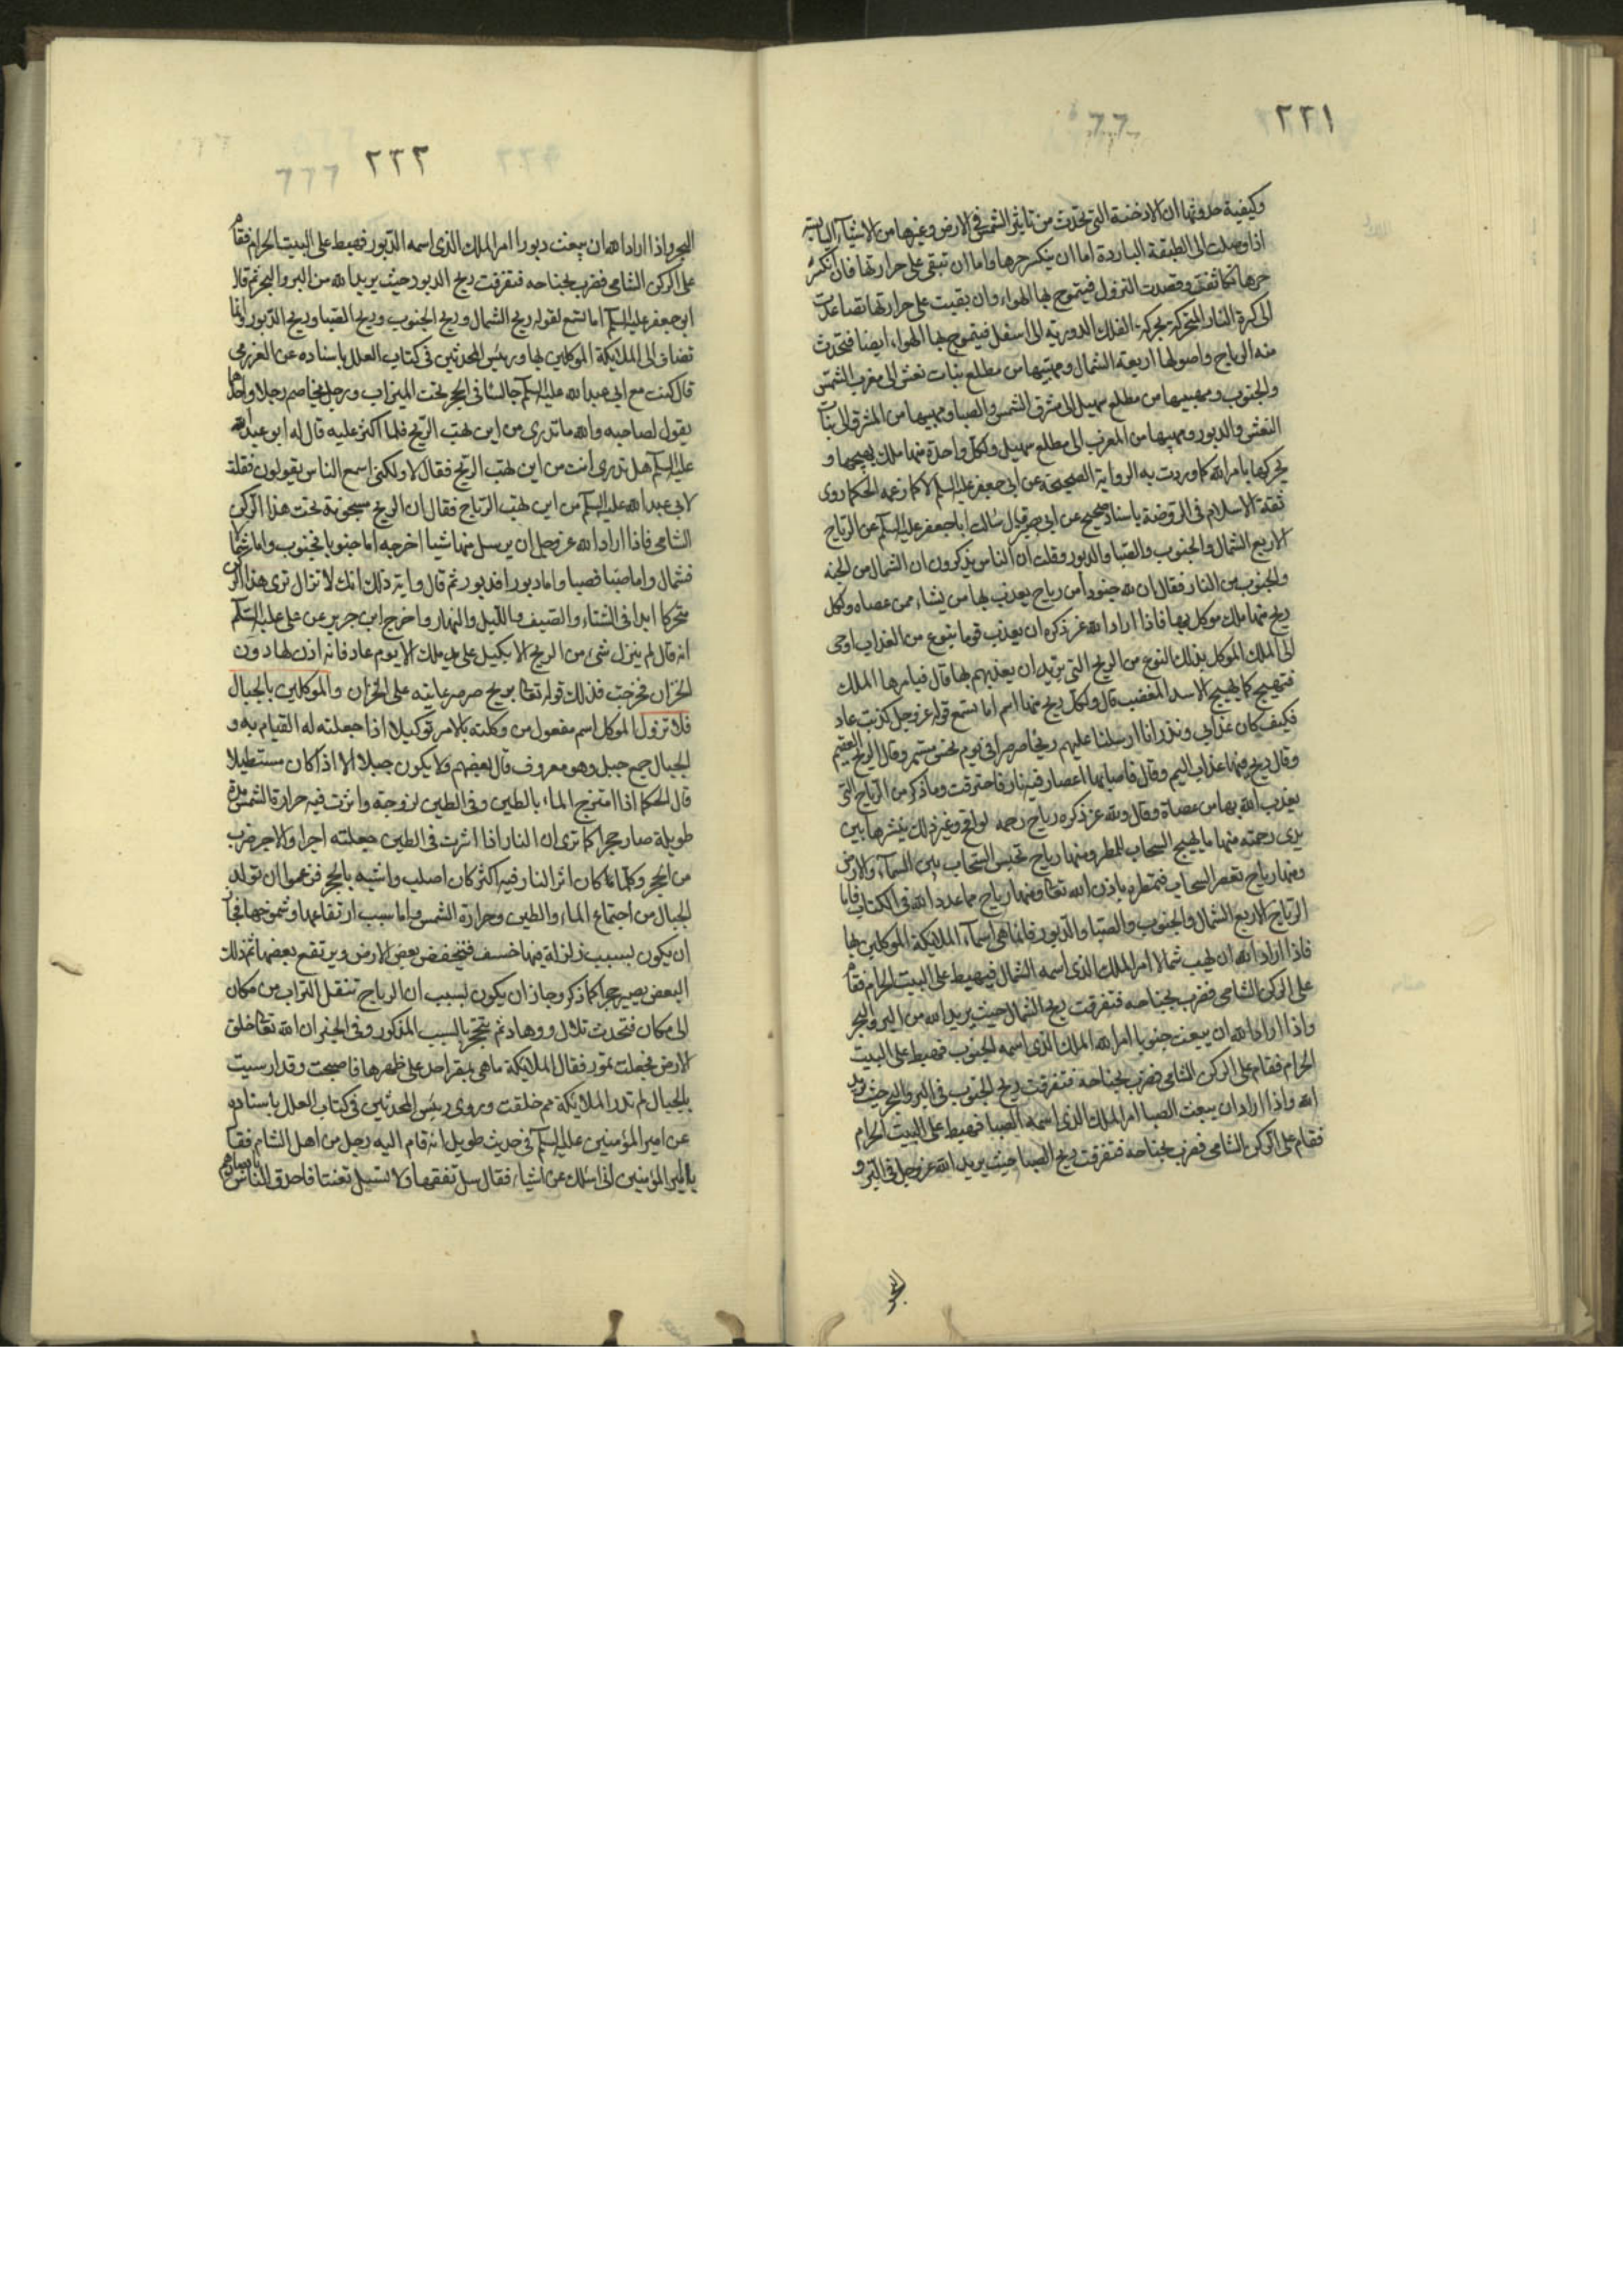 ٢٢١
وكيفية حدوثها ان الادخنة التى تحدث من تاثير الشمس فى الارض وغيرها من الاشياء اليابسة
اذا وصلت الى الطبقة الباردة اما ان ينكسر حرها واما ان تبقى على حرارتها فان انكسر
حرها تكاثفت وقصدت النزول فيتموج بها الهواء وان بقيت على حرارتها تصاعدت
الى كرة النار المتحركة بحركة الفلك الدورية الى اسفل فيتموج بها الهواء ايضا فتحدث
منه الرياح واصولها اربعة الشمال ومهبها من مطلع بنات نعش الى مغرب الشمس
والجنوب ومهبها من مطلع سهيل الى مشرق الشمس والصبا ومهبها من المشرق الى بنات
النعش والدبور ومهبها من المغرب الى مطلع سهيل ولكل واحدة منها ملك يهيجها و
يحركها بامر الله كما وردت به الرواية الصحيحة عن ابى جعفر عليه السلم لا كما زعمه الحكما روى
ثقة الاسلام فى الروضة باسناد صحيح عن ابى بصير قال سالت ابا جعفر عليه السلم عن الرياح
الاربع الشمال والجنوب والصبا والدبور وقلت ان الناس يذكرون ان الشمال من الجنة
والجنوب من النار فقال ان لله جنودا من رياح يعذب بها من يشاء ممن عصاه ولكل
ريح منها ملك موكل بها فاذا اراد الله عز ذكره ان يعذب قوما بنوع من العذاب اوحى
الى الملك الموكل بذلك النوع من الريح التى يريد ان يعذبهم بها قال فيامرها الملك
فتهيج كما يهيج الاسد المغضب قال ولكل ريح منها اسم اما تسمع قوله عز وجل كذبت عاد
فكيف كان عذابى ونذر انا ارسلنا عليهم ريحا صرصرا فى يوم نحس مستمر وقال الريح العقيم
وقال ريح فيها عذاب اليم وقال فاصابها اعصار فيه نار فاحترقت وما ذكر من الرياح التى
يعذب الله بها من عصاه وقال ولله عز ذكره رياح رحمه لواقح وغير ذلك ينشرها بين
يدى رحمته منها ما يهيج السحاب للمطر ومنها رياح تحبس السحاب بين السماء والارض
ومنها رياح تعصر السحاب فتمطره باذن الله تعا ومنها رياح مما عدد الله فى الكتاب فاما
الرياح الاربع الشمال والجنوب والصبا والدبور فانما هى اسماء الملائكة الموكلين بها
فاذا اراد الله ان يهب شمالا امر الملك الذى اسمه الشمال فيهبط على البيت الحرام فقام
على الركن الشامى فضرب بجناحه فتفرقت ريح الشمال حيث يريد الله من البر والبحر
واذا اراد الله ان يبعث جنوبا امر الله الملك الذى اسمه الجنوب فهبط على البيت
الحرام فقام على الركن الشامى فضرب بجناحه فتفرقت ريح الجنوب فى البر والبحر حيث يريد
الله واذا اراد ان يبعث الصبا امر الملك الذى اسمه الصبا فهبط على البيت الحرام
فقام على الركن الشامى فضرب بجناحه فتفرقت ريح الصبا حيث يريد الله عز وجل فى البر و
البحر
٢٢٢
البحر واذا اراد الله ان يبعث دبورا امر الملك الذى اسمه الدبور فهبط على البيت الحرام فقام
على الركن الشامى فضرب بجناحه فتفرقت ريح الدبور حيث يريد الله من البر والبحر ثم قال
ابو جعفر عليه السلم اما تسمع لقوله ريح الشمال وريح الجنوب وريح الصبا وريح الدبور وانما
تضاف الى الملايكة الموكلين بها ورئيس المحدثين فى كتاب العلل باسناده عن العزرمى
قال كنت مع ابى عبد الله عليه السلم جالسا فى الحجر تحت الميزاب ورجل يخاصم رجلا واحدهما
يقول لصاحبه والله ما تدرى من اين تهب الريح فلما اكثر عليه قال له ابو عبد الله
عليه السلم هل تدرى انت من اين تهب الريح فقال لا ولكنى اسمع الناس يقولون فقلت
لابى عبد الله عليه السلم من اين تهب الرياح فقال ان الريح مسجونة تحت هذا الركن
الشامى فاذا اراد الله عز وجل ان يرسل منها شيا اخرجه اما جنوبا فجنوب واما شمالا
فشمال واما صبا فصبا واما دبورا فدبور ثم قال واية ذلك انك لا تزال ترى هذا الركن
متحركا ابدا فى الشتاء والصيف والليل والنهار واخرج ابن جرير عن على عليه السلم
انه قال لم ينزل شىء من الريح الا بكيل على يد ملك الا يوم عاد فانه اذن لها دون
الخزان فخرجت فذلك قوله تعا بريح صرصر عاتيه على الخزان والموكلين بالجبال
فلا تزول الموكل اسم مفعول من وكلته بالامر توكيلا اذا جعلته له القيام به و
الجبال جمع جبل وهو معروف قال بعضهم ولا يكون جبلا الا اذا كان مستطيلا
قال الحكما اذا امتزج الماء بالطين وفى الطين لزوجة واثرت فيه حرارة الشمس مدة
طويلة صار حجرا كما ترى ان النار اذا اثرت فى الطين جعلته اجرا والاجر ضرب
من الحجر وكلما كان اثر النار فيه اكثر كان اصلب واشبه بالحجر فزعموا ان تولد
الجبال من اجتماع الماء والطين وحرارة الشمس واما سبب ارتفاعها وشموخها فجائز
ان يكون بسبب زلزلة فيها خسف فينخفض بعض الارض ويرتفع بعضها ثم ذلك
البعض يصير حجرا كما ذكر وجاز ان يكون بسبب ان الرياح تنقل التراب من مكان
الى مكان فتحدث تلال ووهاد ثم يتحجر بالسبب المذكور وفى الخبر ان الله تعا خلق
الارض فجعلت تمور فقال الملائكة ما هى بمقر احد على ظهرها فاصبحت وقد ارسيت
بالجبال لم تدر الملائكة مم خلقت وروى رئيس المحدثين فى كتاب العلل باسناده
عن امير المؤمنين عليه السلم فى حديث طويل انه قام اليه رجل من اهل الشام فقال
يا امير المؤمنين انى اسئلك عن اشياء فقال سل تفقها ولا تسئل تعنتا فاحدق الناس بابصارهم